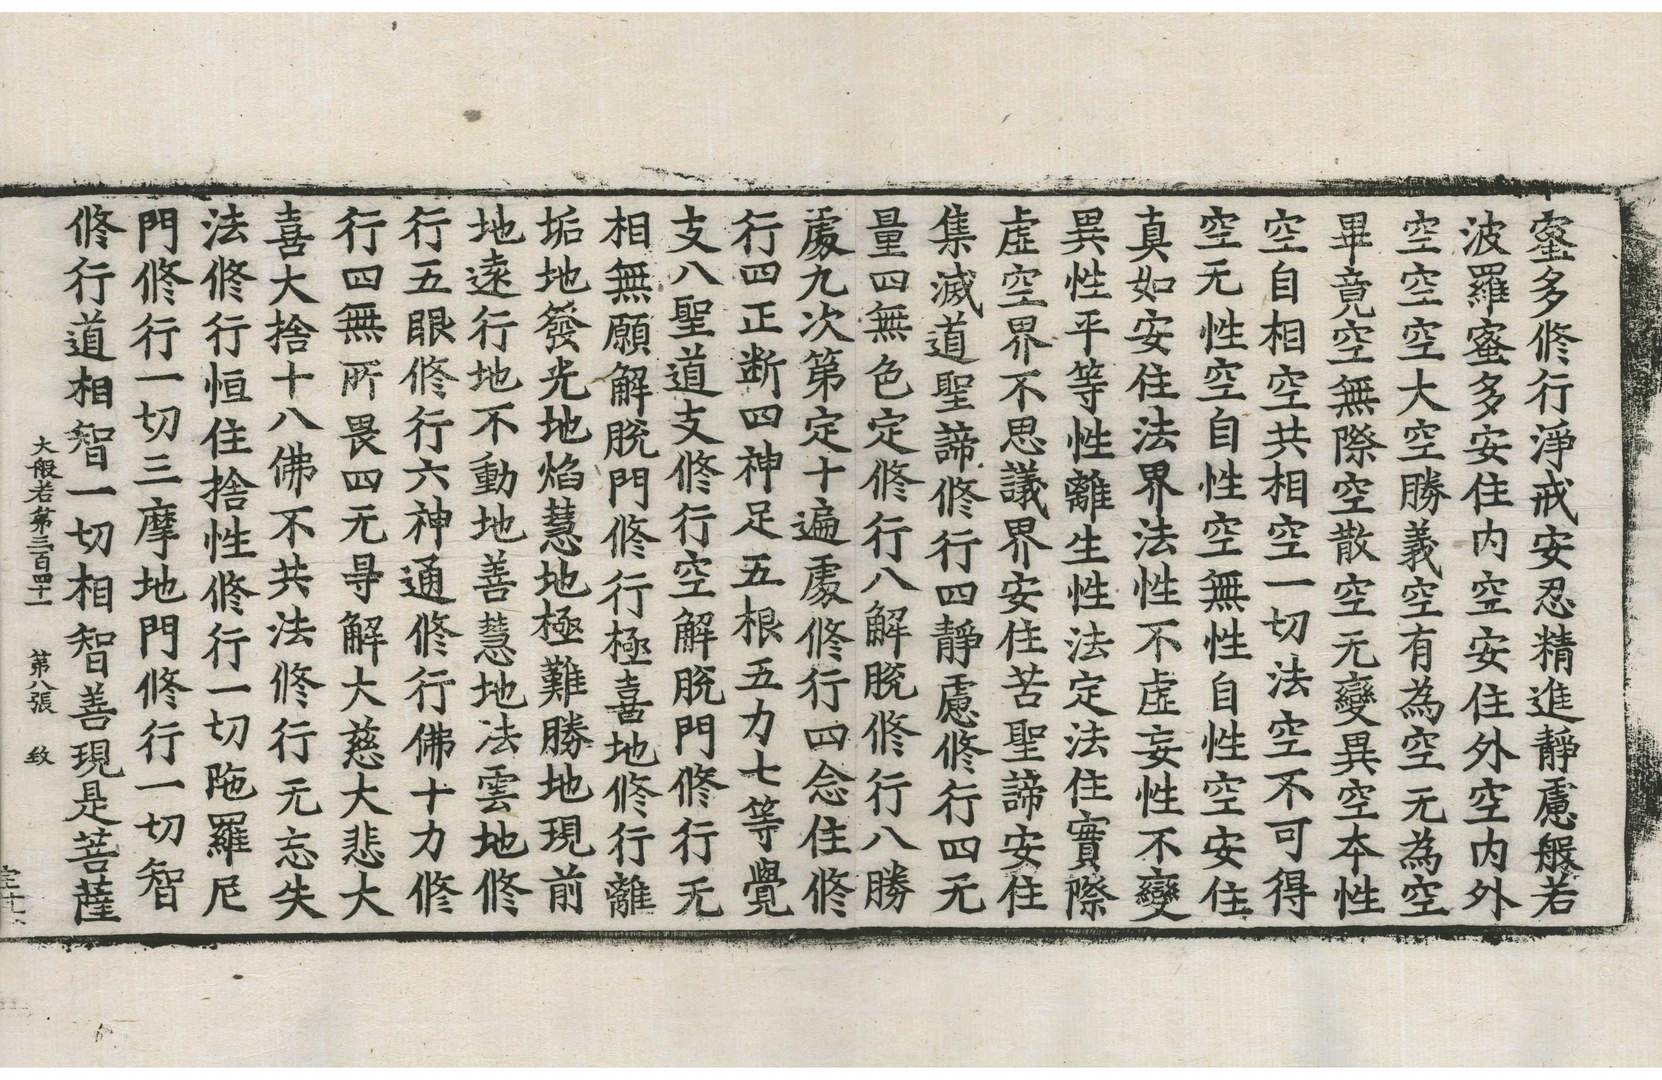 蜜多修行淨戒安忍精進靜慮般若
波羅蜜多安住内空安住外空内外
空空空大空勝義空有為空无為空
畢竟空無際空散空无變異空本性
空自相空共相空一切法空不可得
空无性空自性空無性自性空安住
真如安住法界法性不虛妄性不變
異性平等性離生性法定法住實際
虛空界不思議界安住苦聖諦安住
集滅道聖諦修行四靜慮修行四无
量四無色定修行八解脫修行八勝
處九次第定十遍處修行四念住修
行四正断四神足五根五力七等覺
支八聖道支修行空解脫門修行无
相無願解脫門修行極喜地修行離
垢地發光地焰慧地極難勝地現前
地遠行地不動地善慧地法雲地修
行五眼修行六神通修行佛十力修
行四無所畏四无㝵解大慈大悲大
喜大捨十八佛不共法修行无忘失
法修行恒住捨性修行一切陁羅尼
門修行一切三摩地門修行一切智
修行道相智一切相智善現是菩薩
大般若第三百四十一 第八張 致